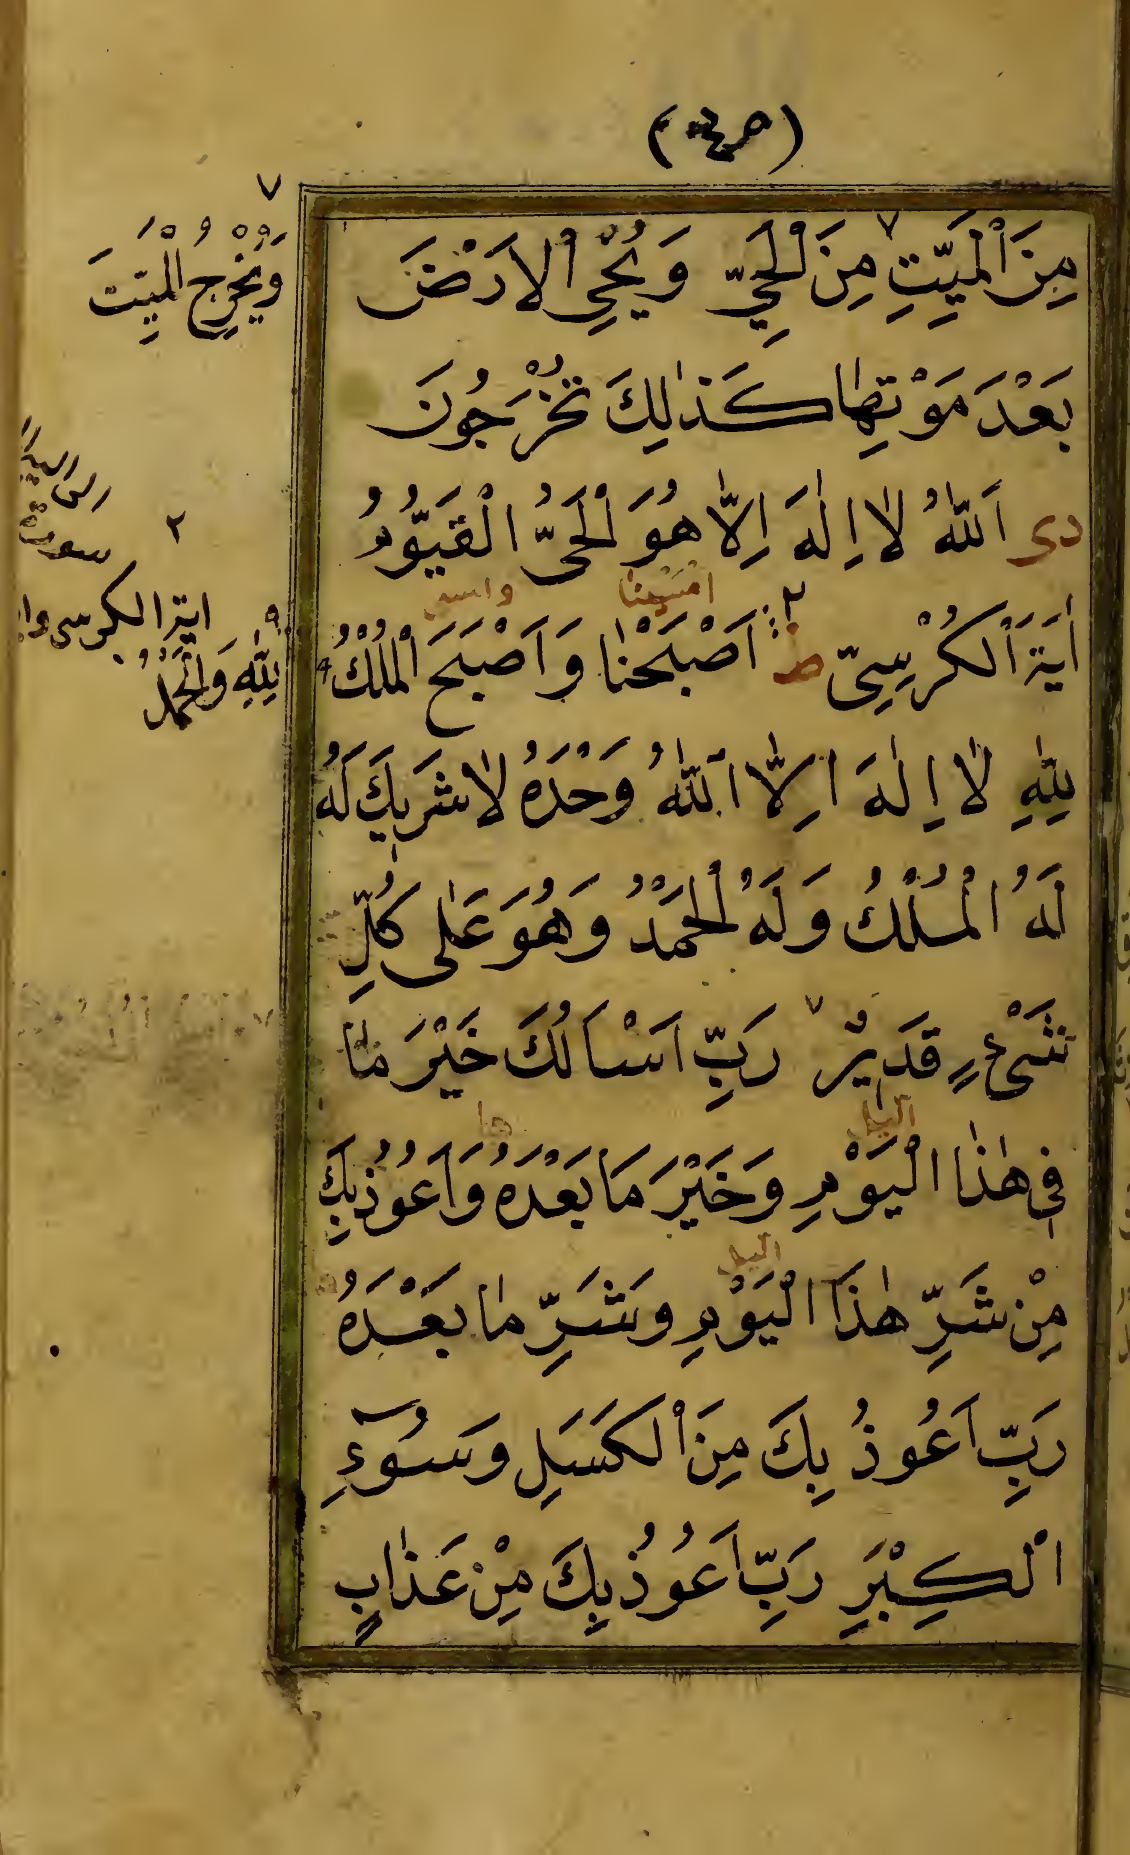 مِنَ الْمَيِّتِ ٧ مِنَ الْحَيِّ وَيُحْيِ الْاَرْضَ
بَعْدَ مَوْتِهَا كَذٰلِكَ تُخْرَجُونَ
دى اَللّٰهُ لٰا اِلٰهَ اِلَّا هُوَ الْحَىُّ الْقَيُّومُ
امسينا وامسى
اٰيَةَ الْكُرْسِىِّ ٢ اَصْبَحْنٰا وَاَصْبَحَ الْمُلْكُ
لِلّٰهِ لٰا اِلٰهَ اِلَّا اللّٰهُ وَحْدَهُ لٰا شَرِيكَ لَهُ
لَهُ الْمُلْكُ وَلَهُ الْحَمْدُ وَهُوَ عَلٰى كُلِّ
شَىْءٍ قَدِيْرٌ ٧ رَبِّ اَسْاَلُكَ خَيْرَ مٰا
اليل ها
فِى هٰذَا الْيَوْمِ وَخَيْرَ مَا بَعْدَهُ وَاَعُوذُ بِكَ
اليل
مِنْ شَرِّ هٰذَا الْيَوْمِ وَشَرِّ مٰا بَعْدَهُ
رَبِّ اَعُوذُ بِكَ مِنَ الْكَسَلِ وَسُوٓءِ
الْكِبَرِ رَبِّ اَعُوذُ بِكَ مِنْ عَذٰابٍ
٧
وَيُخْرِجُ الْمَيِّتَ
٢
سورة
اية الكرسى
لِلّٰهِ وَالْحَمْدُ